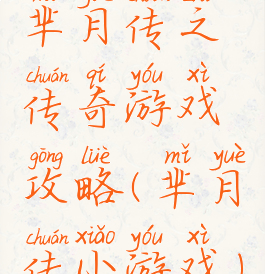 芈月传之
chuán qí yóu xì
传奇游戏
gōng lüè mǐ yuè
攻略(芈月
chuán xiǎo yóu xì
传小游戏)